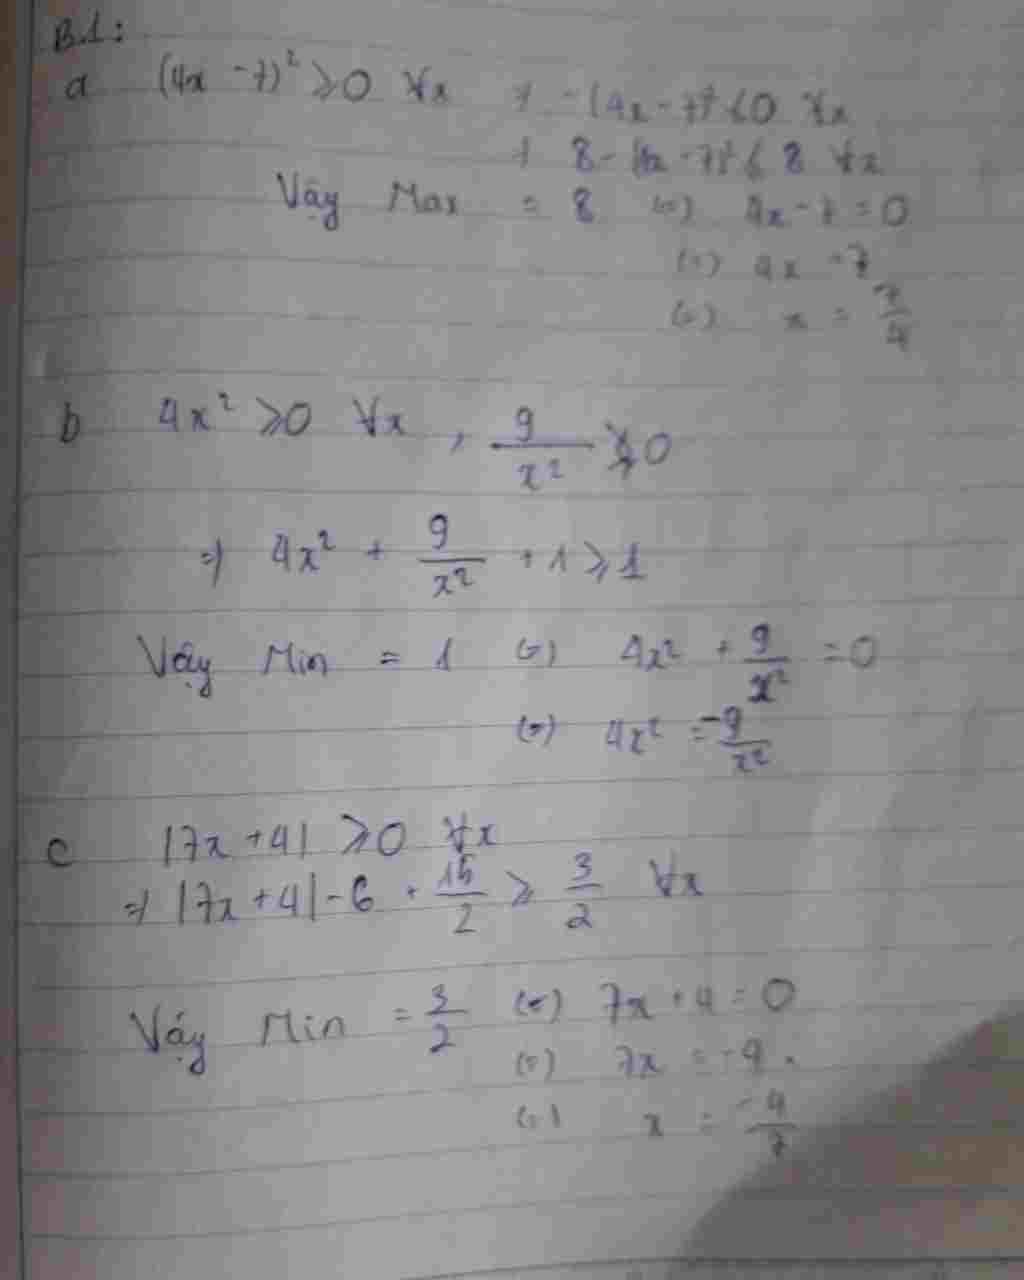 B.1:
a (4x - 7)² ≥ 0 ∀x + -(4x - 7)² ≤ 0 ∀x
+ 8 - (4x - 7)² ≤ 8 ∀x
Vậy Max = 8 (=) 4x - 7 = 0
(=) 4x = 7
(=) x = 7/4
b 4x² ≥ 0 ∀x , 9/x² ≥ 0
=) 4x² + 9/x² + 1 ≥ 1
Vậy Min = 1 (=) 4x² + 9/x² = 0
(=) 4x² = -9/x²
c |7x + 4| ≥ 0 ∀x
=) |7x + 4| - 6 + 15/2 ≥ 3/2 ∀x
Vậy Min = 3/2 (=) 7x + 4 = 0
(=) 7x = -4
(=) x = -4/7